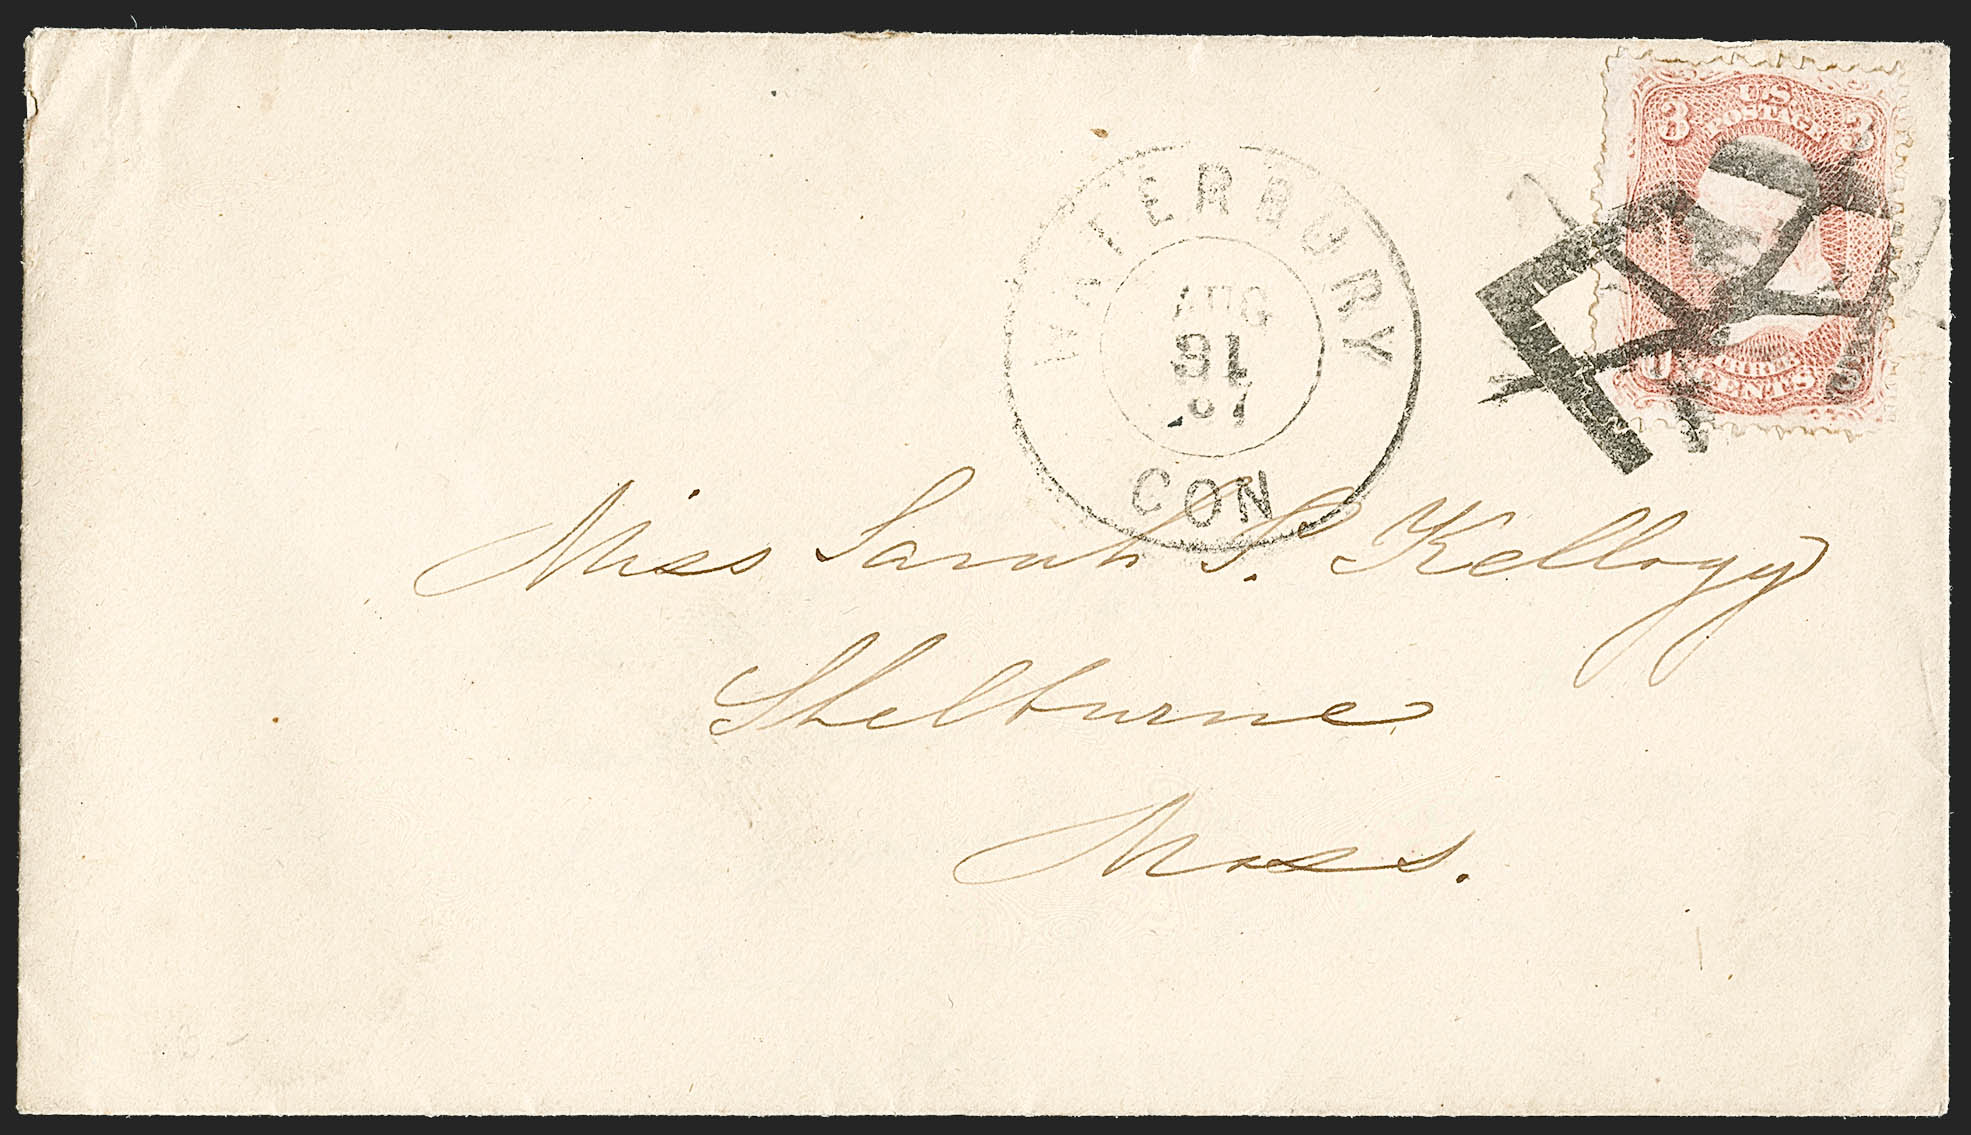 3 U.S. 3
POSTAGE
THREE
CENTS
WATERBURY
AUG
31
67
CON
Miss Sarah S. Kellogg
Shelburne
Mass.